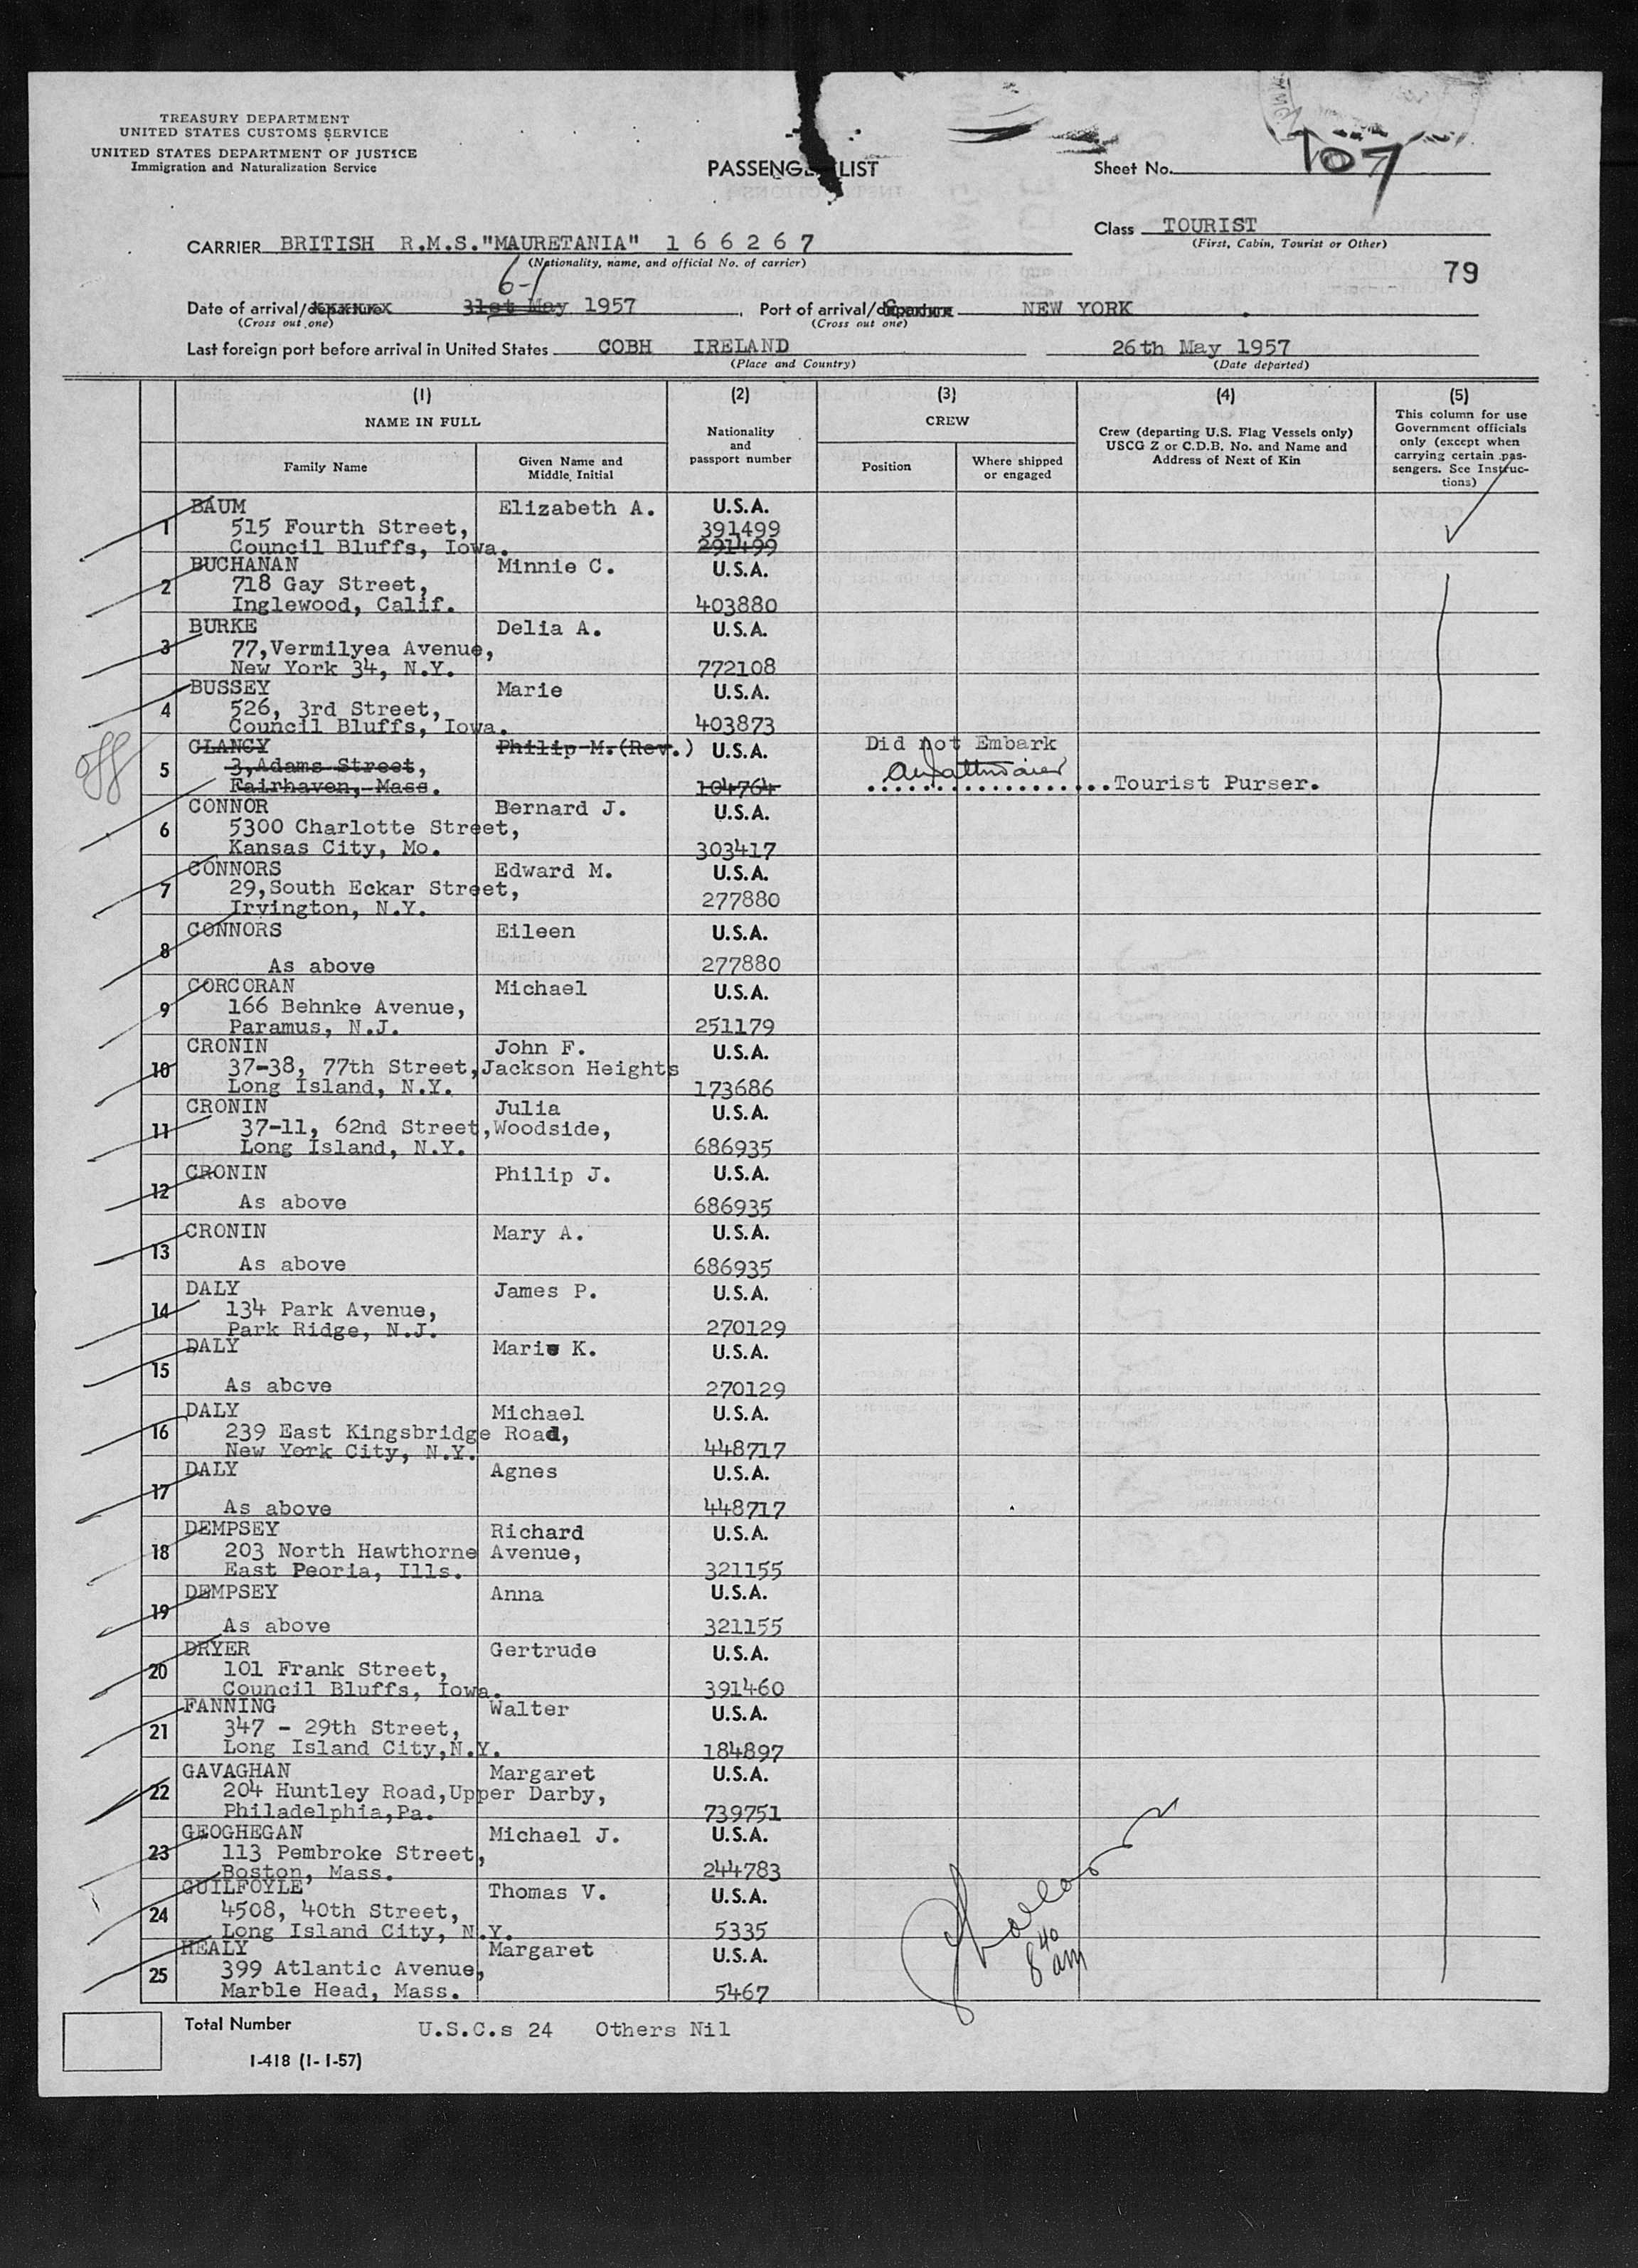 TREASURY DEPARTMENT
UNITED STATES CUSTOMS SERVICE
UNITED STATES DEPARTMENT OF JUSTICE
Immigration and Naturalization Service
PASSENGE LIST
Sheet No. 107
Class TOURIST
(First, Cabin, Tourist or Other)
CARRIER BRITISH R.M.S."MAURETANIA" 1 6 6 2 6 7
(Nationality, name, and official No. of carrier)
79
6-1
Date of arrival/departure 31st May 1957
(Cross out one)
Port of arrival/departure NEW YORK
(Cross out one)
Last foreign port before arrival in United States COBH IRELAND 26th May 1957
(Place and Country) (Date departed)
(1) (2) (3) (4) (5)
NAME IN FULL
Family Name
Given Name and Middle Initial
Nationality and passport number
CREW
Position
Where shipped or engaged
Crew (departing U.S. Flag Vessels only)
USCG Z or C.D.B. No. and Name and
Address of Next of Kin
This column for use
Government officials
only (except when
carrying certain pas-
sengers. See Instruc-
tions)
1 BAUM Elizabeth A. U.S.A.
515 Fourth Street, 391499
Council Bluffs, Iowa. 291499
2 BUCHANAN Minnie C. U.S.A.
718 Gay Street,
Inglewood, Calif. 403880
3 BURKE Delia A. U.S.A.
77,Vermilyea Avenue,
New York 34, N.Y. 772108
4 BUSSEY Marie U.S.A.
526, 3rd Street,
Council Bluffs, Iowa. 403873
off
5 CLANCY Philip M.(Rev.) U.S.A. Did not Embark
3,Adams Street,
Fairhaven, Mass. 104764 Tourist Purser.
6 CONNOR Bernard J. U.S.A.
5300 Charlotte Street,
Kansas City, Mo. 303417
7 CONNORS Edward M. U.S.A.
29,South Eckar Street, 277880
Irvington, N.Y.
8 CONNORS Eileen U.S.A.
As above 277880
9 CORCORAN Michael U.S.A.
166 Behnke Avenue,
Paramus, N.J. 251179
10 CRONIN John F. U.S.A.
37-38, 77th Street,Jackson Heights
Long Island, N.Y. 173686
11 CRONIN Julia U.S.A.
37-11, 62nd Street,Woodside,
Long Island, N.Y. 686935
12 CRONIN Philip J. U.S.A.
As above 686935
13 CRONIN Mary A. U.S.A.
As above 686935
14 DALY James P. U.S.A.
134 Park Avenue,
Park Ridge, N.J. 270129
15 DALY Marie K. U.S.A.
As above 270129
16 DALY Michael U.S.A.
239 East Kingsbridge Road,
New York City, N.Y. 448717
17 DALY Agnes U.S.A.
As above 448717
18 DEMPSEY Richard U.S.A.
203 North Hawthorne Avenue,
East Peoria, Ills. 321155
19 DEMPSEY Anna U.S.A.
As above 321155
20 DRYER Gertrude U.S.A.
101 Frank Street,
Council Bluffs, Iowa. 391460
21 FANNING Walter U.S.A.
347 - 29th Street,
Long Island City,N.Y. 184897
22 GAVAGHAN Margaret U.S.A.
204 Huntley Road,Upper Darby,
Philadelphia,Pa. 739751
23 GEOGHEGAN Michael J. U.S.A.
113 Pembroke Street,
Boston, Mass. 244783
24 GUILFOYLE Thomas V. U.S.A.
4508, 40th Street,
Long Island City, N.Y. 5335
25 HEALY Margaret U.S.A.
399 Atlantic Avenue,
Marble Head, Mass. 5467
8 40 am
Total Number U.S.C.s 24 Others Nil
I-418 (1-1-57)